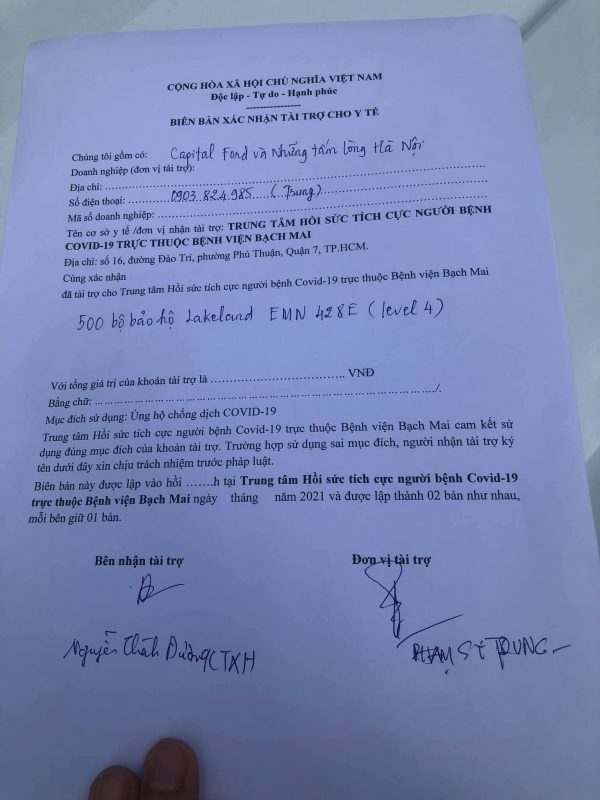 CỘNG HÒA XÃ HỘI CHỦ NGHĨA VIỆT NAM
Độc lập - Tự do - Hạnh phúc
----------------
BIÊN BẢN XÁC NHẬN TÀI TRỢ CHO Y TẾ
Chúng tôi gồm có: Capital Ford và Những tấm lòng Hà Nội
Doanh nghiệp (đơn vị tài trợ):
Địa chỉ: ....................
Số điện thoại: 0903.824.985 (Trung)
Mã số doanh nghiệp: ....................
Tên cơ sở y tế /đơn vị nhận tài trợ: TRUNG TÂM HỒI SỨC TÍCH CỰC NGƯỜI BỆNH
COVID-19 TRỰC THUỘC BỆNH VIỆN BẠCH MAI
Địa chỉ: số 16, đường Đào Trí, phường Phú Thuận, Quận 7, TP.HCM.
Cùng xác nhận
đã tài trợ cho Trung tâm Hồi sức tích cực người bệnh Covid-19 trực thuộc Bệnh viện Bạch Mai
500 bộ bảo hộ Lakeland EMN 428E (level 4)
Với tổng giá trị của khoản tài trợ là .................... VNĐ
Bằng chữ: ..................../.
Mục đích sử dụng: Ủng hộ chống dịch COVID-19
Trung tâm Hồi sức tích cực người bệnh Covid-19 trực thuộc Bệnh viện Bạch Mai cam kết sử
dụng đúng mục đích của khoản tài trợ. Trường hợp sử dụng sai mục đích, người nhận tài trợ ký
tên dưới đây xin chịu trách nhiệm trước pháp luật.
Biên bản này được lập vào hồi .......h tại Trung tâm Hồi sức tích cực người bệnh Covid-19
trực thuộc Bệnh viện Bạch Mai ngày tháng năm 2021 và được lập thành 02 bản như nhau,
mỗi bên giữ 01 bản.
Bên nhận tài trợ Đơn vị tài trợ
Nguyễn Thành Dương CTXH PHẠM SỸ TRUNG